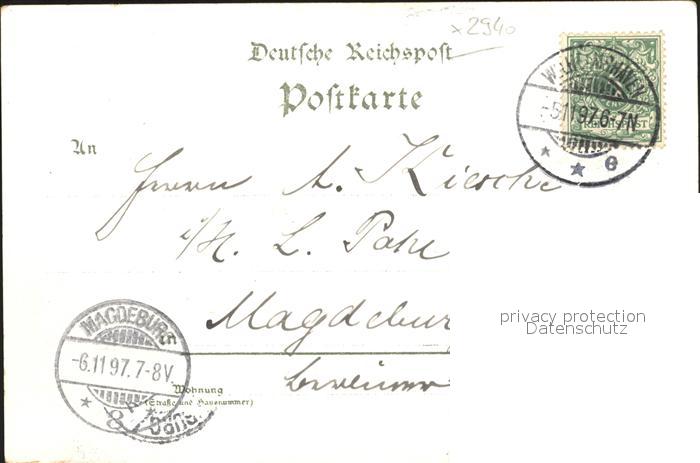 x 2940
Deutsche Reichspost
Postkarte
WILHELMSHAVEN
-5.11.97.6-7N
* * e
REICHSPOST
An
Herrn A. Kiesche
i/H. L. Pahl
Magdebur
privacy protection
Datenschutz
MAGDEBURG
-6.11.97.7-8V
* 8 *
Wohnung
(Straße und Hausnummer)
Berliner